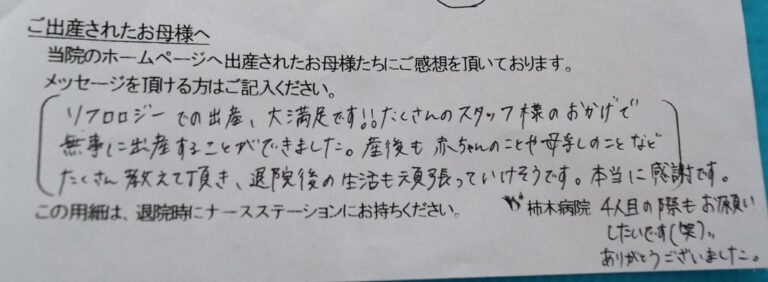 ご出産されたお母様へ
当院のホームページへ出産されたお母様たちにご感想を頂いております。
メッセージを頂ける方はご記入ください。
リフロロジーでの出産、大満足です!!たくさんのスタッフ様のおかげで
無事に出産することができました。産後も赤ちゃんのことや母乳のことなど
たくさん教えて頂き、退院後の生活も頑張っていけそうです。本当に感謝です。
この用紙は、退院時にナースステーションにお持ちください。 柿木病院
4人目の際もお願い
したいです(笑)。
ありがとうございました。